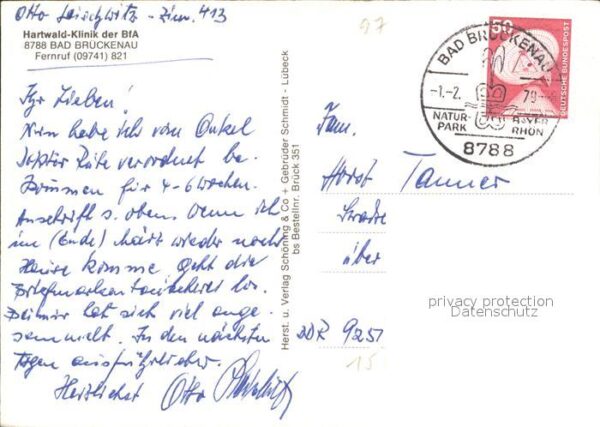 Otto Leischwitz - Zim. 413
97
Hartwald-Klinik der BfA
8788 BAD BRÜCKENAU
Fernruf (09741) 821
Ihr Lieben!
Nun habe ich vom Onkel
Doktor Ruhe verordnet be-
kommen für 4-6 Wochen.
Anschrift s. oben. Wenn ich
im (Ende) März wieder nach
Hause komme, geht die
Briefmarken los.
Bei mir hat sich viel ange-
sammelt. In den nächsten
Tagen ausführlicher.
Herzlichst Otto
Herst. u. Verlag Schöning & Co + Gebrüder Schmidt - Lübeck
bs Bestellnr. Brück 351
50
DEUTSCHE BUNDESPOST
BAD BRÜCKENAU
-1.-2. 79-
NATUR- BAYER.
PARK RHÖN
8788
Fam.
Horst Tanner
über
DDR 9251
15
privacy protection
Datenschutz